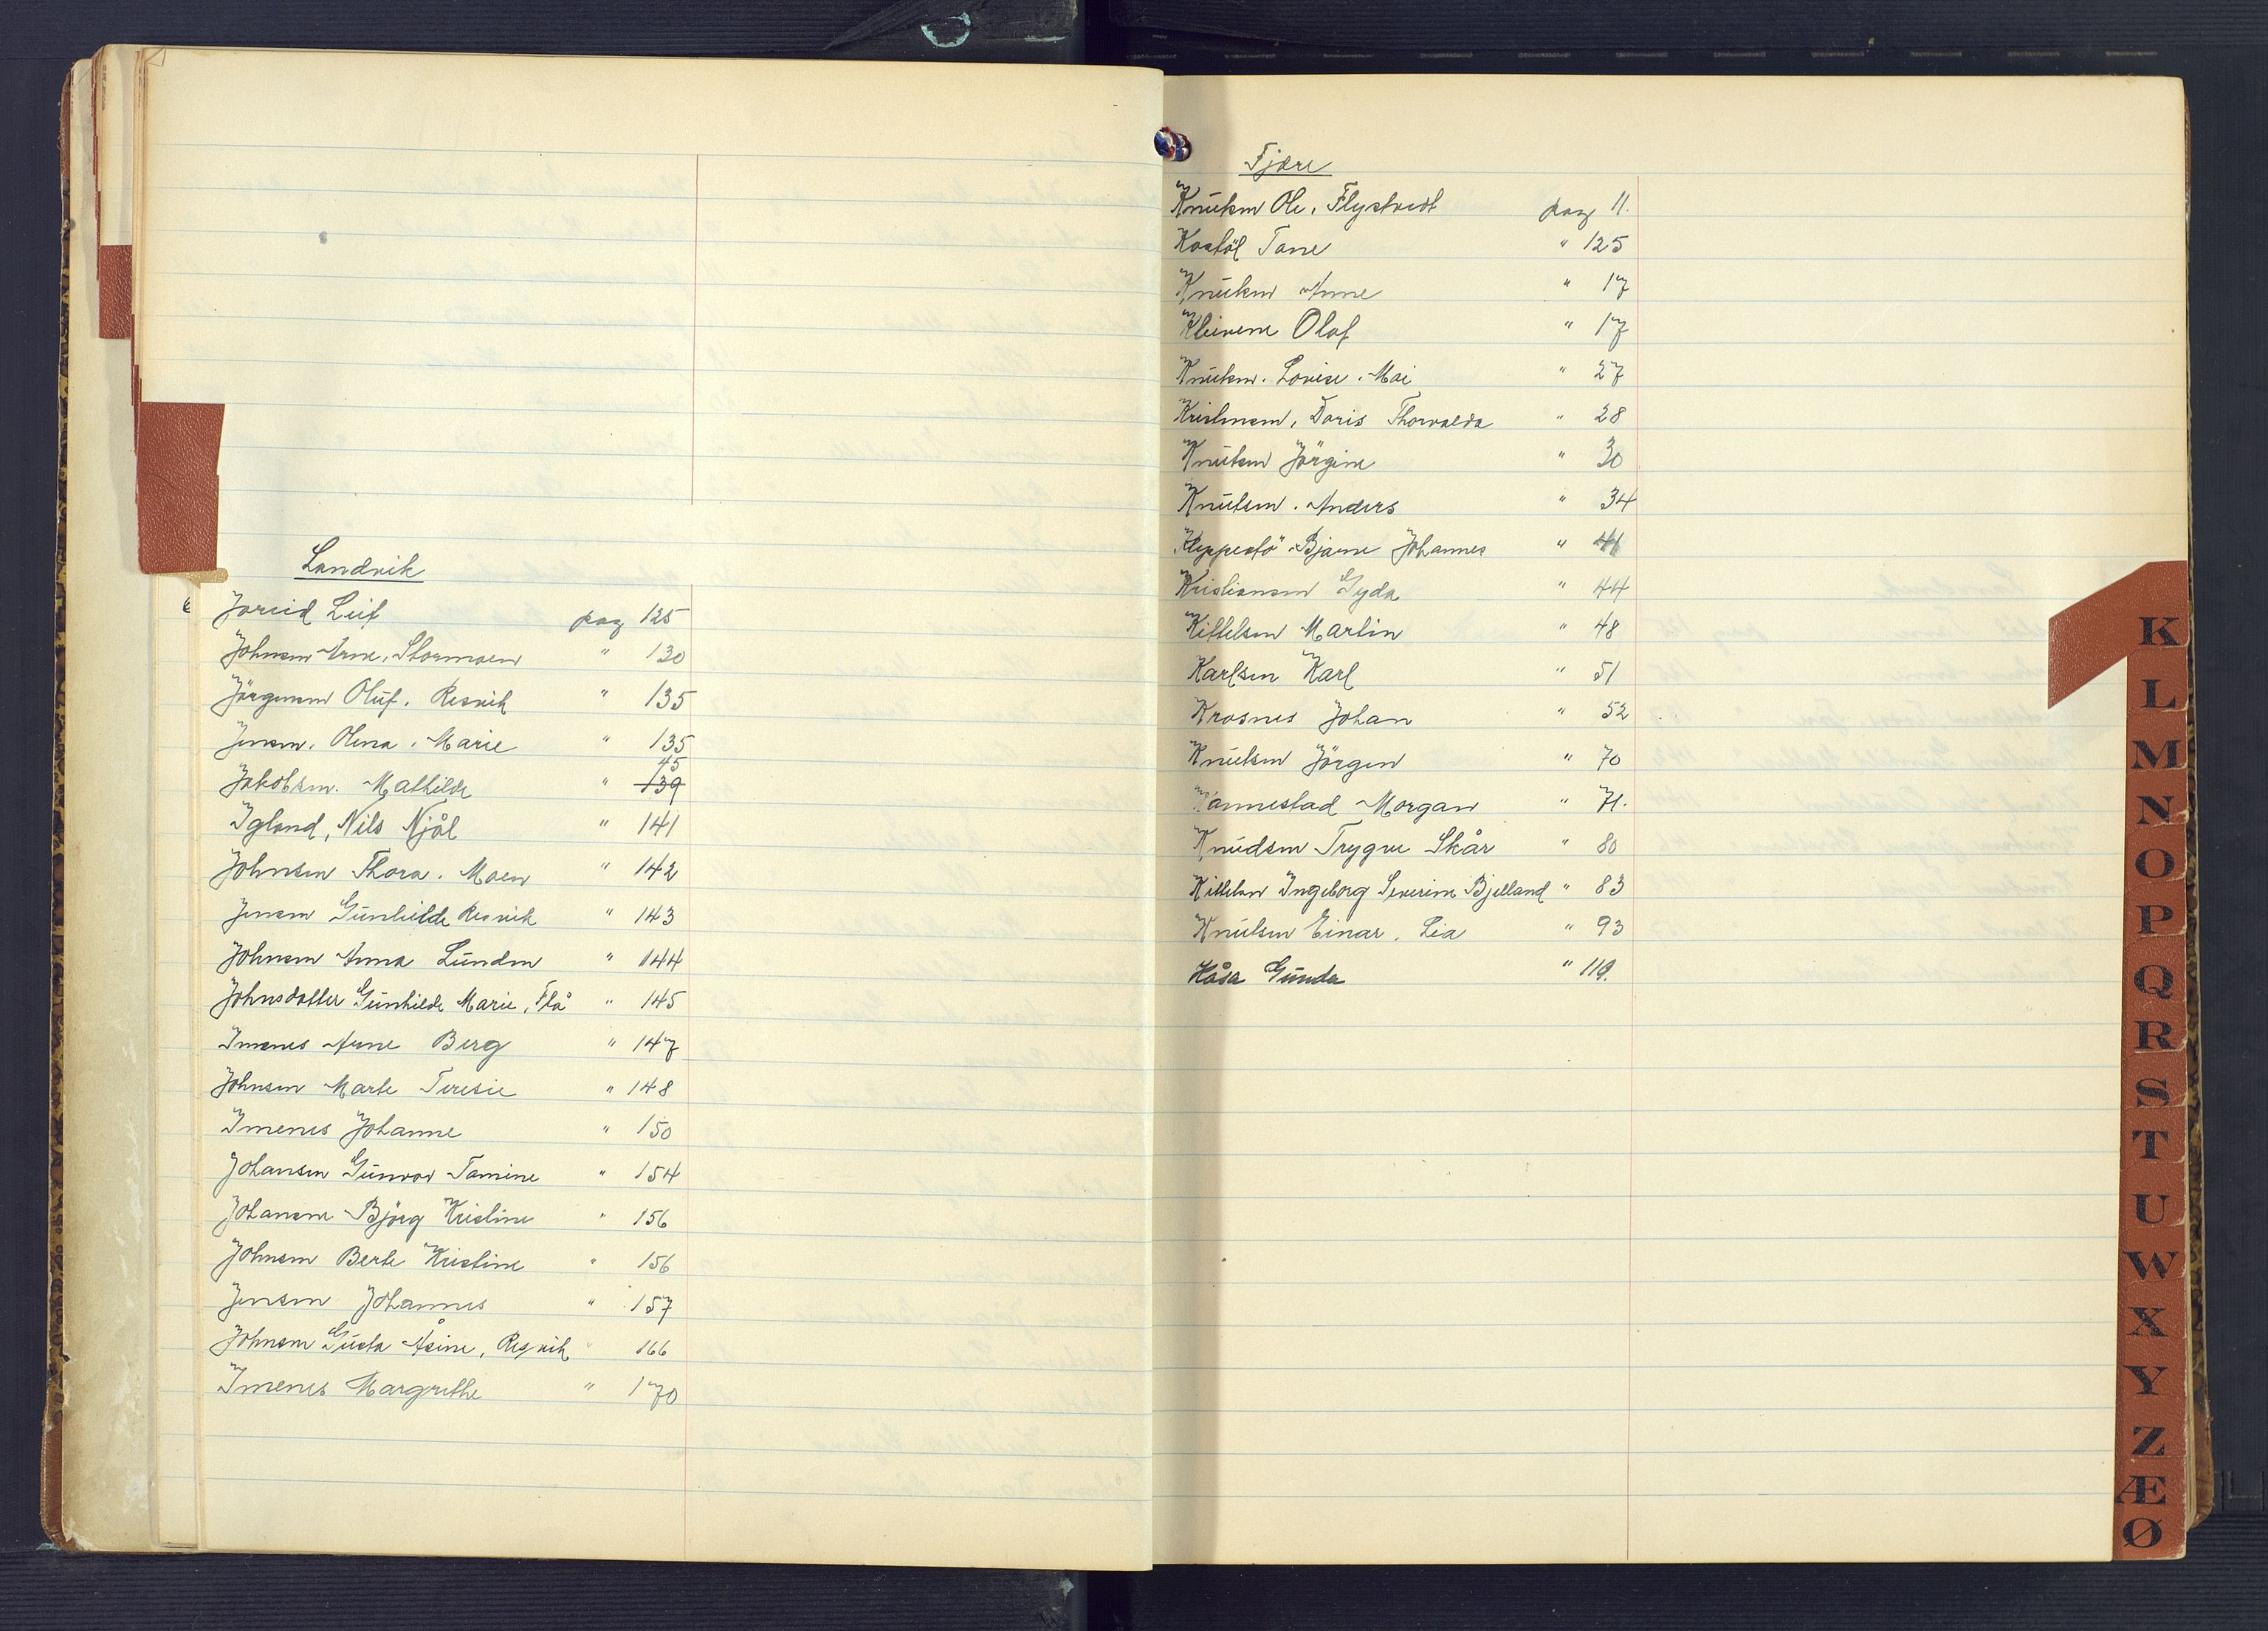 Landvik
Joreid Leif pag 125
Johnsen Arne, Stormoen " 130
Jörgensen Oluf. Resvik " 135
Jensen. Olena. Marie " 135
45
Jakobsen. Mathilde " 139
Igland, Nils Njål " 141
Johnsen Thora. Moen " 142
Jensen Gunhilde Resvik " 143
Johnsen Anna Lunden " 144
Johnsdatter Gunhilde Marie, Flå " 145
Imenes Anne Berg " 147
Johnsen Marte Teresie " 148
Imenes Johanne " 150
Johansen Gunvor Tomine " 154
Johansen Björg Kristine " 156
Johnsen Berte Kristine " 156
Jensen Johannes " 157
Johnsen Gusta Åsine, Resvik " 166
Imenes Margrethe " 170
Fjære
Knutsen Ole, Flystveit pag 11.
Kostöl Tone " 125
Knutsen Anne " 17
Kleivene Olaf " 17
Knutsen. Lovise. Mai " 27
Kristensen, Doris Thorvalda " 28
Knutsen Jörgine " 30
Knutsen. Anders " 34
Kleppestö Bjarne Johannes " 41
Kristiansen Gyda " 44
Kittelsen Martin " 48
Karlsen Karl " 51
Krosnes Johan " 52
Knutsen Jörgen " 70
Kannestad Morgan " 71.
Knudsen Trygve Skår " 80
Kittelsen Ingeborg Severine Bjelland " 83
Knutsen Einar. Lia " 93
Kåsa Gunda " 119.
K
L
M
N
O
P
Q
R
S
T
U
W
X
Y
Z
Æ
Ø